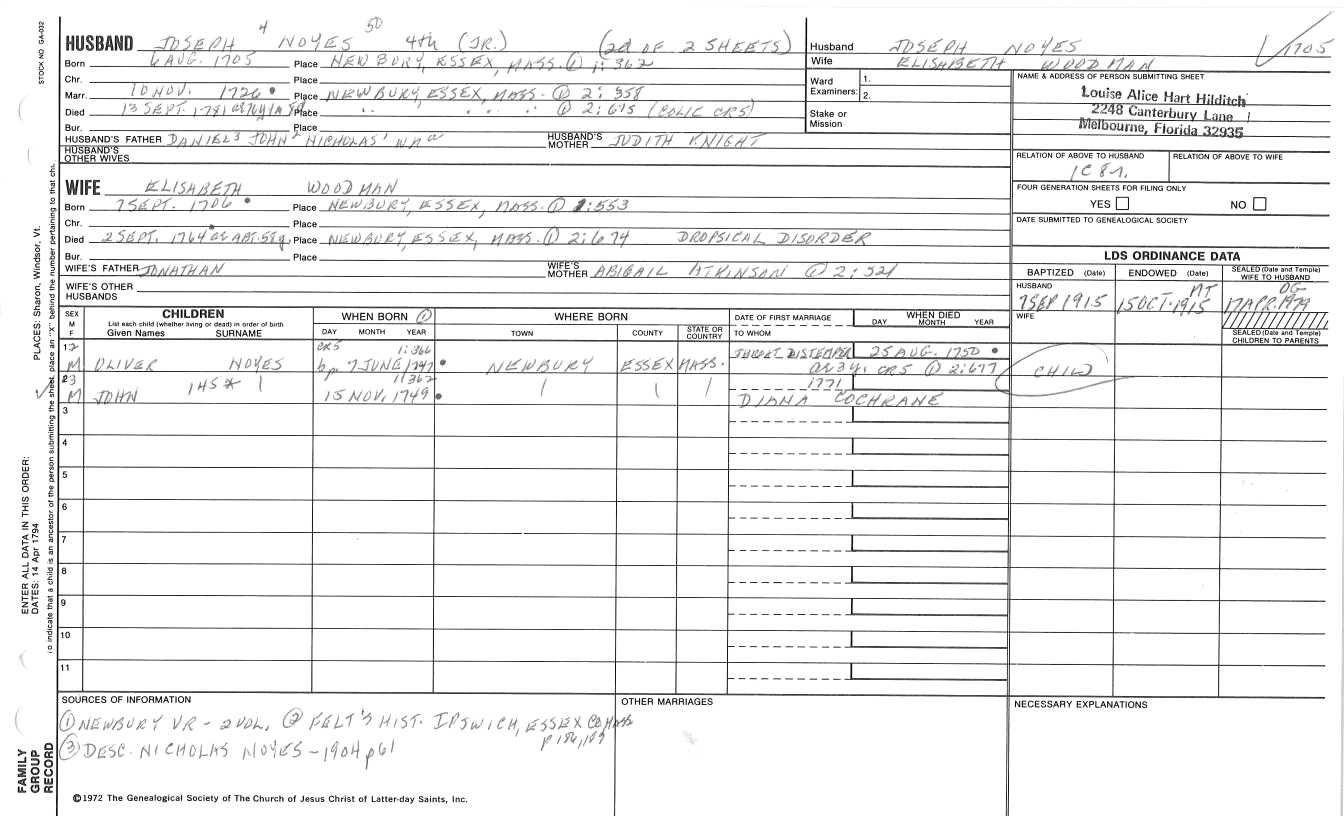 STOCK NO GA-032
4 50
HUSBAND JOSEPH NOYES 4th (JR.) (2d OF 2 SHEETS)
Born 6 AUG. 1705 Place NEWBURY, ESSEX, MASS. ① 1:362
Chr. Place
Marr. 10 NOV. 1726 Place NEWBURY, ESSEX, MASS. ① 2:358
Died 13 SEPT. 1781 Place " " " ① 2:675 (COLIC CR5)
Bur. Place
HUSBAND'S FATHER DANIEL3 JOHN2 NICHOLAS1 HUSBAND'S MOTHER JUDITH KNIGHT
HUSBAND'S OTHER WIVES
WIFE ELISABETH WOODMAN
Born 7 SEPT. 1706 Place NEWBURY, ESSEX, MASS. ① 1:553
Chr. Place
Died 2 SEPT. 1764 Place NEWBURY, ESSEX, MASS. ① 2:674 DROPSICAL DISORDER
Bur. Place
WIFE'S FATHER JONATHAN WIFE'S MOTHER ABIGAIL ATKINSON @ 2:521
WIFE'S OTHER HUSBANDS
Husband JOSEPH NOYES 1705
Wife ELISABETH WOODMAN
Ward Examiners: 1.
2.
Stake or Mission
NAME & ADDRESS OF PERSON SUBMITTING SHEET
Louise Alice Hart Hilditch
2248 Canterbury Lane
Melbourne, Florida 32935
RELATION OF ABOVE TO HUSBAND RELATION OF ABOVE TO WIFE
1C 8r.
FOUR GENERATION SHEETS FOR FILING ONLY
YES NO
DATE SUBMITTED TO GENEALOGICAL SOCIETY
LDS ORDINANCE DATA
BAPTIZED (Date) ENDOWED (Date) SEALED (Date and Temple) WIFE TO HUSBAND
HUSBAND MT OG
7 SEP 1915 15 OCT. 1915 17 APR. 1979
WIFE
SEALED (Date and Temple) CHILDREN TO PARENTS
SEX M F
CHILDREN
List each child (whether living or dead) in order of birth
Given Names SURNAME
WHEN BORN ①
DAY MONTH YEAR
WHERE BORN
TOWN COUNTY STATE OR COUNTRY
DATE OF FIRST MARRIAGE
TO WHOM
WHEN DIED
DAY MONTH YEAR
12 CR5 1:366
M OLIVER NOYES bp. 7 JUNE 1747 NEWBURY ESSEX MASS. THROAT DISTEMPER 25 AUG. 1750
3y. CR5 ① 2:677 CHILD
23 145* 1:362 1771
M JOHN 15 NOV. 1749 DIANA COCHRANE
3
4
5
6
7
8
9
10
11
SOURCES OF INFORMATION
① NEWBURY VR - 2 VOL. ② FELT'S HIST. IPSWICH, ESSEX CO MASS
③ DESC. NICHOLAS NOYES - 1904 p61
OTHER MARRIAGES
NECESSARY EXPLANATIONS
©1972 The Genealogical Society of The Church of Jesus Christ of Latter-day Saints, Inc.
PLACES: Sharon, Windsor, Vt.
ENTER ALL DATA IN THIS ORDER:
DATES: 14 Apr 1794
o indicate that a child is an ancestor of the person submitting the sheet, place an "X" behind the number pertaining to that chi.
FAMILY GROUP RECORD